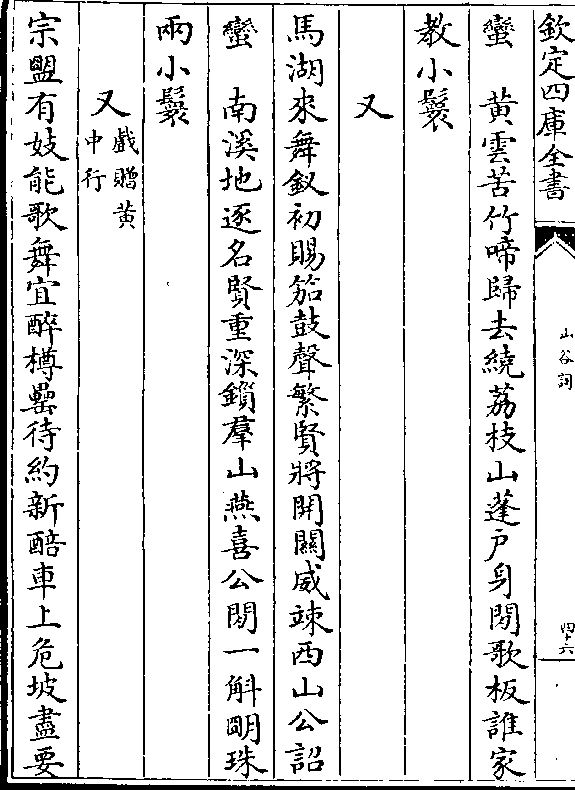 欽定四庫全書
山谷詞
四十六
蠻　黃雲苦竹啼歸去繞荔枝山蓬户身閒歌板誰家
教小鬟
又
馬湖來舞釵初賜笳鼓聲繁賢將開關威竦西山公詔
蠻　南溪地逐名賢重深鎖羣山燕喜公閒一斛明珠
兩小鬟
又戲贈黃
中行
宗盟有妓能歌舞宜醉樽罍待約新醅車上危坡盡要